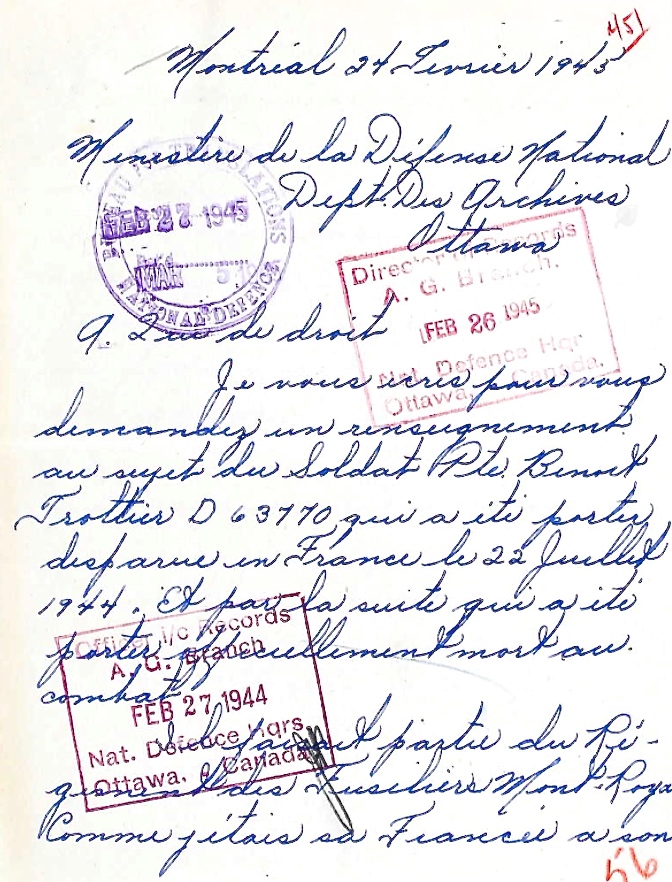 451
Montréal 24 Fevrier 1945
Ministère de la Défense National
Dept. Des Archives
Ottawa
BUREAU FOR TRANSLATIONS
FEB 27 1945
MAR 5
NATIONAL DEFENCE
Director of Records
A. G. Branch.
FEB 26 1945
Nat. Defence Hqr
Ottawa, Canada.
A. Qui de droit
Je vous ecris pour vous
demandez un renseignement
au sujet du Soldat Pte. Benoit
Trottier D 63770 qui a été porter
disparue en France le 22 Juillet
1944. Et par la suite qui a été
porter officiellement mort au
combat.
Officer i/c Records
A. G. Branch
FEB 27 1944
Nat. Defence Hqrs
Ottawa, Canada
Il faisait partie du Ré-
giment des Fusiliers Mont-Roya
Comme j'étais sa Francée a son
56